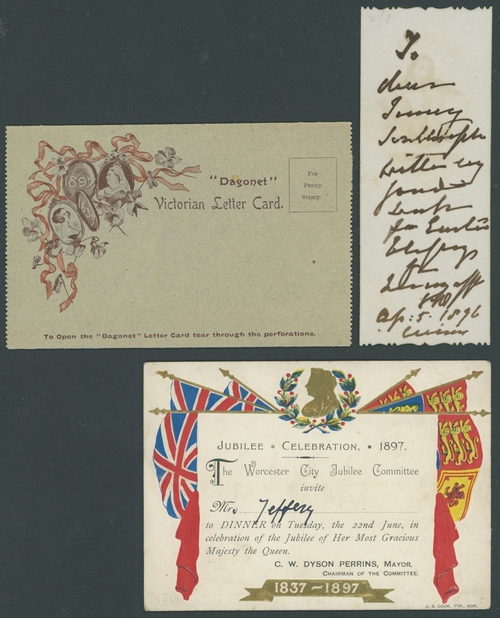 1897
"Dagonet"
Victorian Letter Card.
For
Penny
Stamp.
To Open the "Dagonet" Letter Card tear through the perforations.
To
dear
with my
good
from
Ap: 5. 1896
JUBILEE * CELEBRATION, * 1897.
The Worcester City Jubilee Committee
invite
Mr. Jeffery
to DINNER on Tuesday, the 22nd June, in
celebration of the Jubilee of Her Most Gracious
Majesty the Queen.
C. W. DYSON PERRINS, MAYOR,
CHAIRMAN OF THE COMMITTEE.
1837-1897